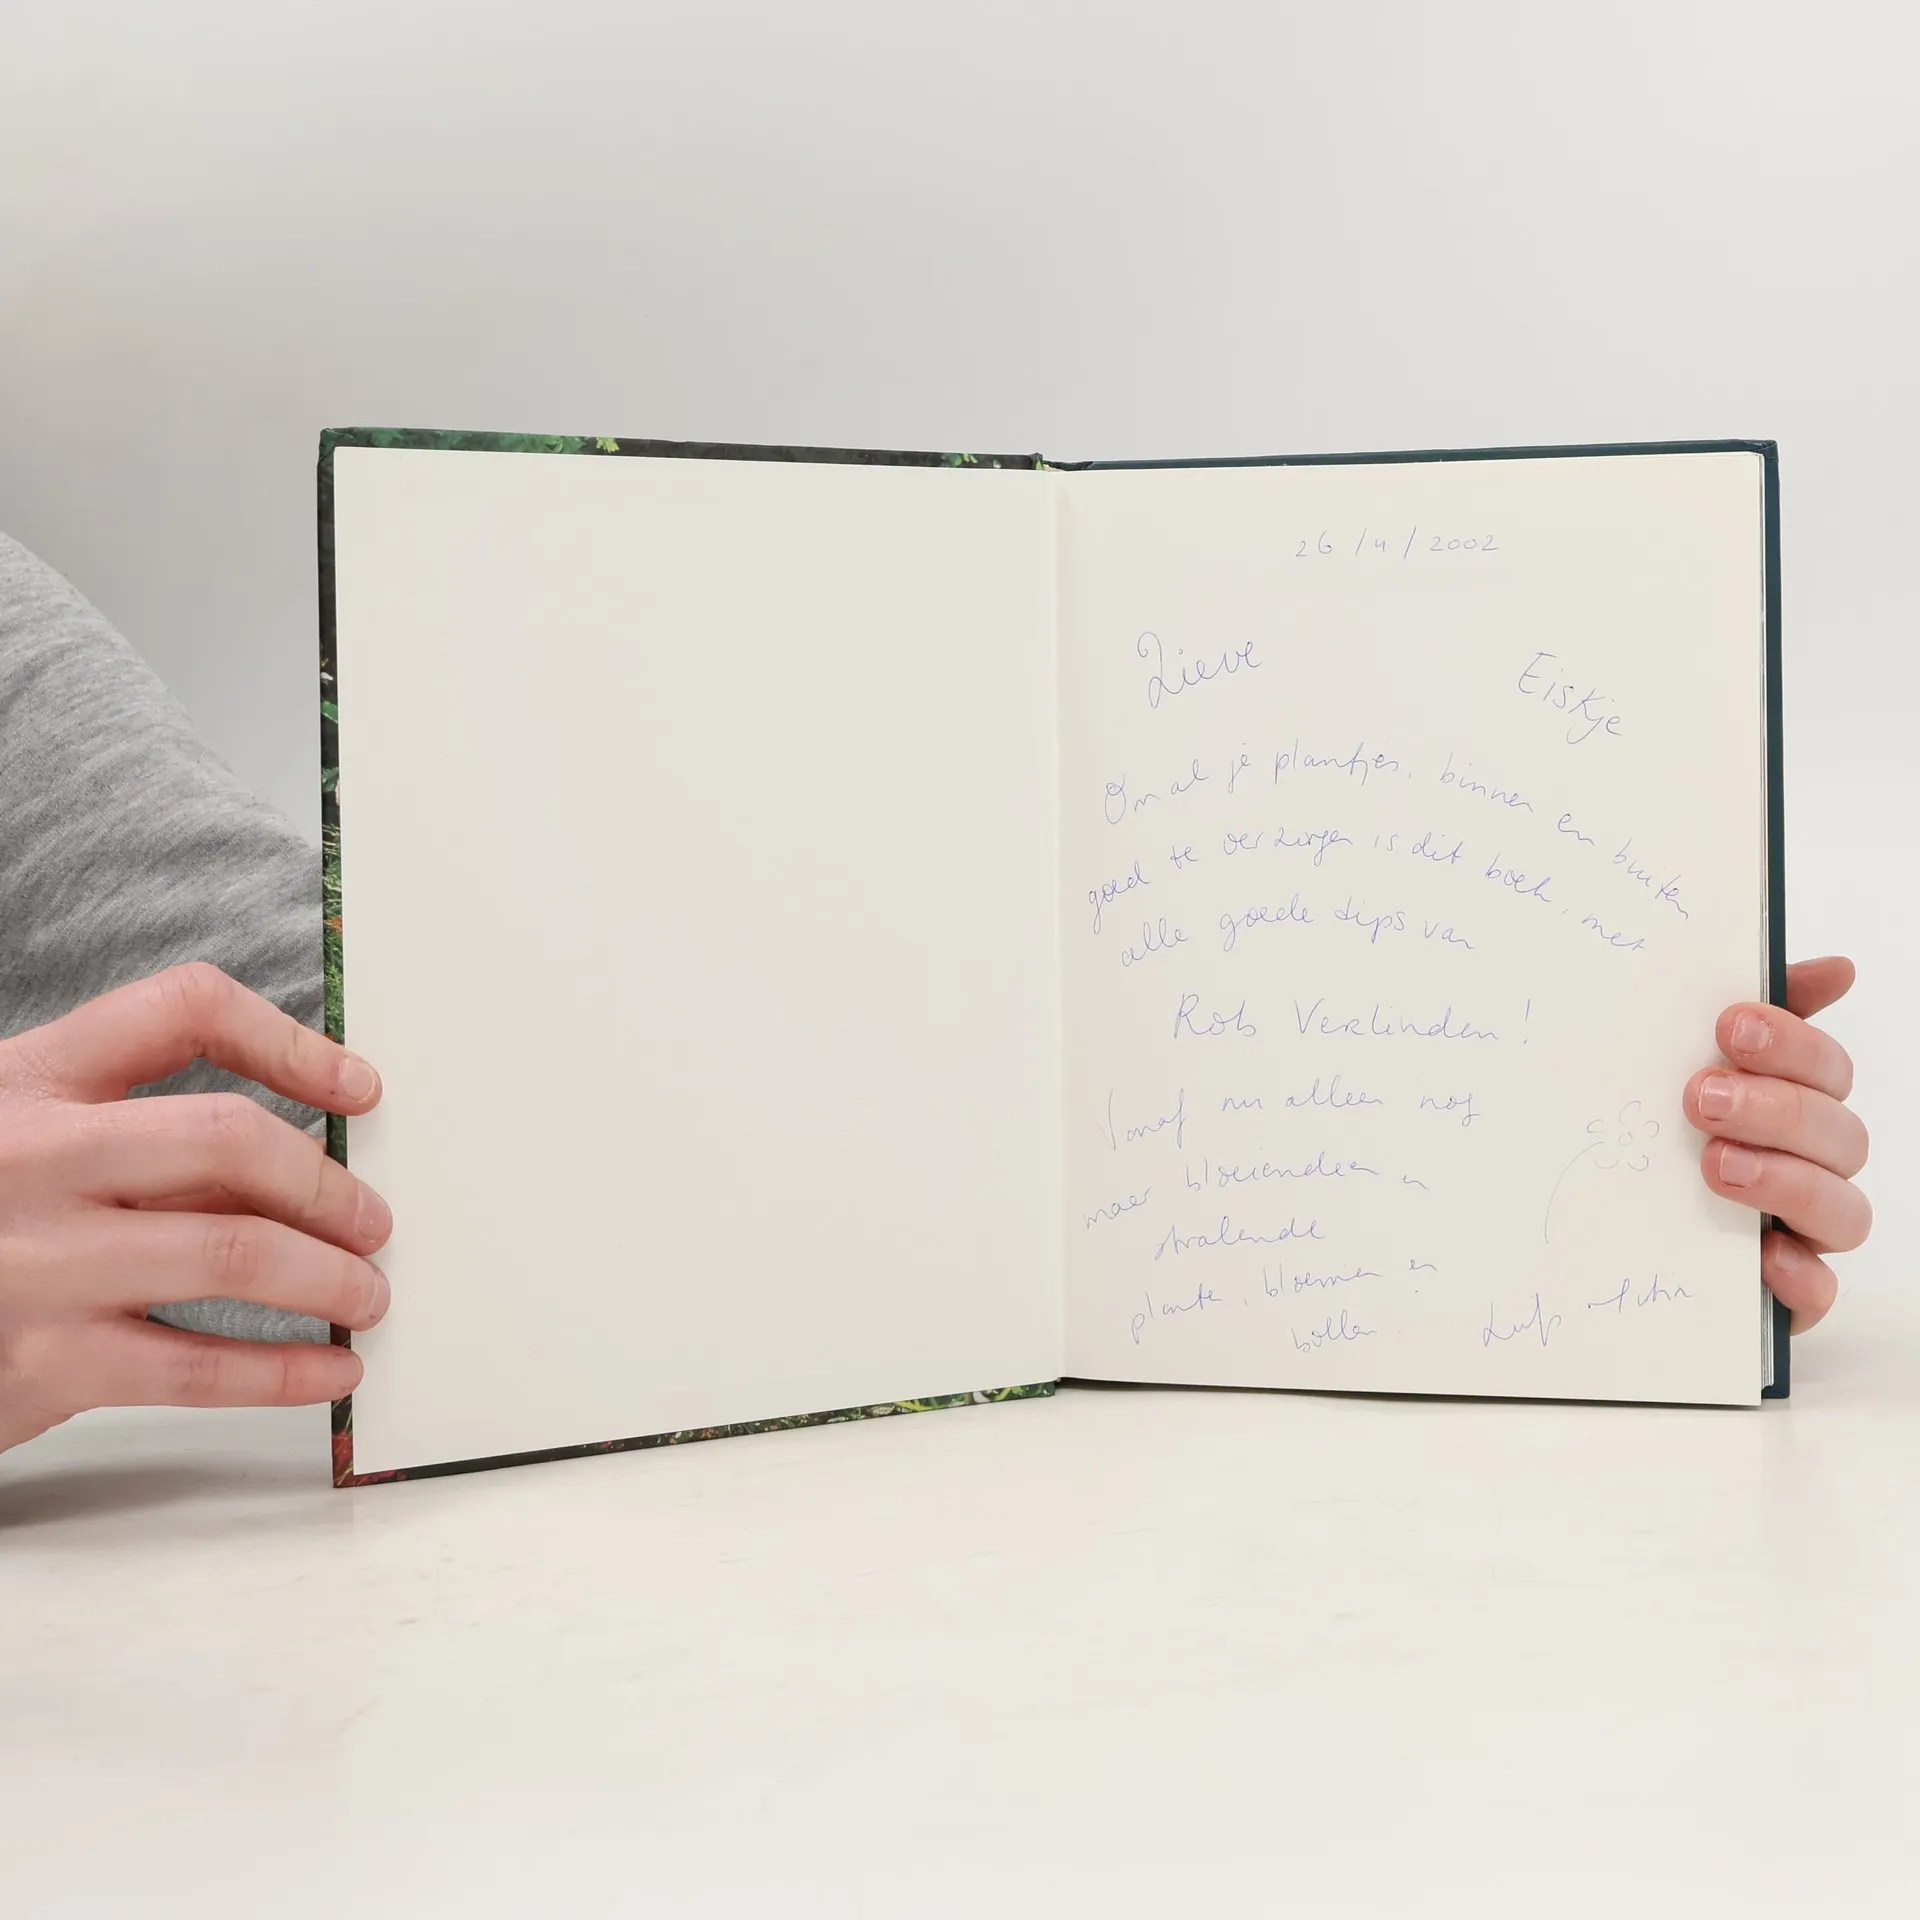 26/4/2002
Lieve Eiskje
Om al je plantjes, binnen en buiten
goed te verzorgen is dit boek, met
alle goede tips van
Rob Verlinden!
Vanaf nu alleen nog
maar bloeiendeen en
stralende
plante, bloemen en
bollen.
Liefs